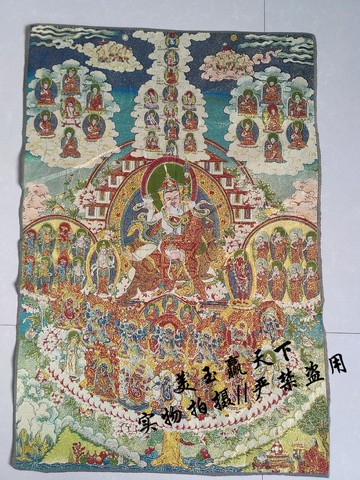 美玉赢天下
实物拍摄//严禁盗用